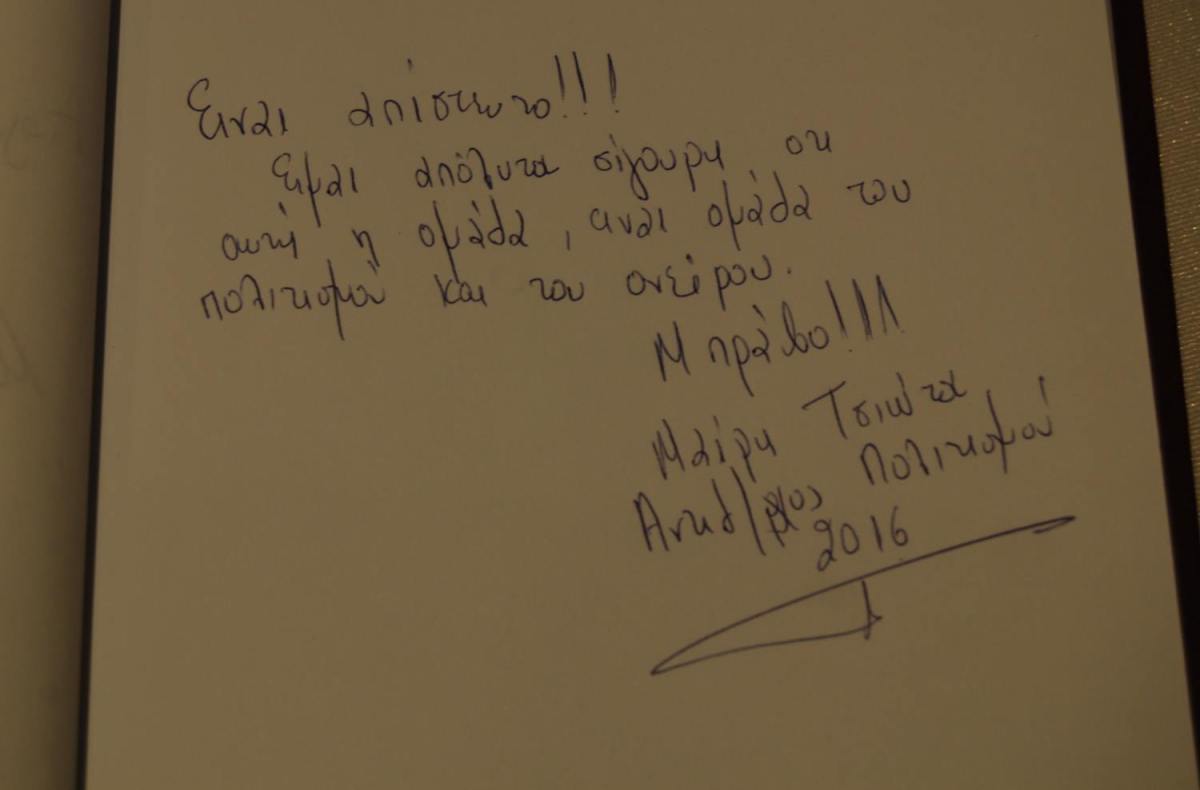 Είναι απίστευτο!!!
Είμαι απόλυτα σίγουρη οτι
αυτή η ομάδα, είναι ομάδα του
πολιτισμού και του ονείρου.
Μπράβο!!!
Μαίρη Τσιώτα
Αντιδ/ρχος Πολιτισμού
2016